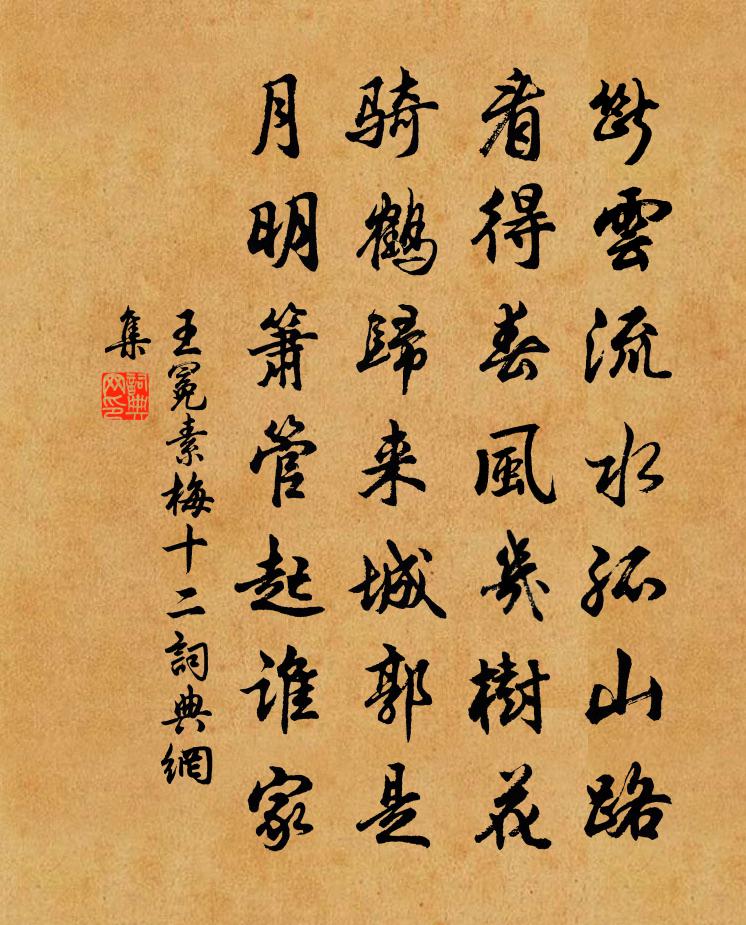 斷雲流水孤山路
看得春風幾樹花
騎鶴歸来城郭是
月明簫管起誰家
王冕素梅十二詞典網
集
詞典
网印